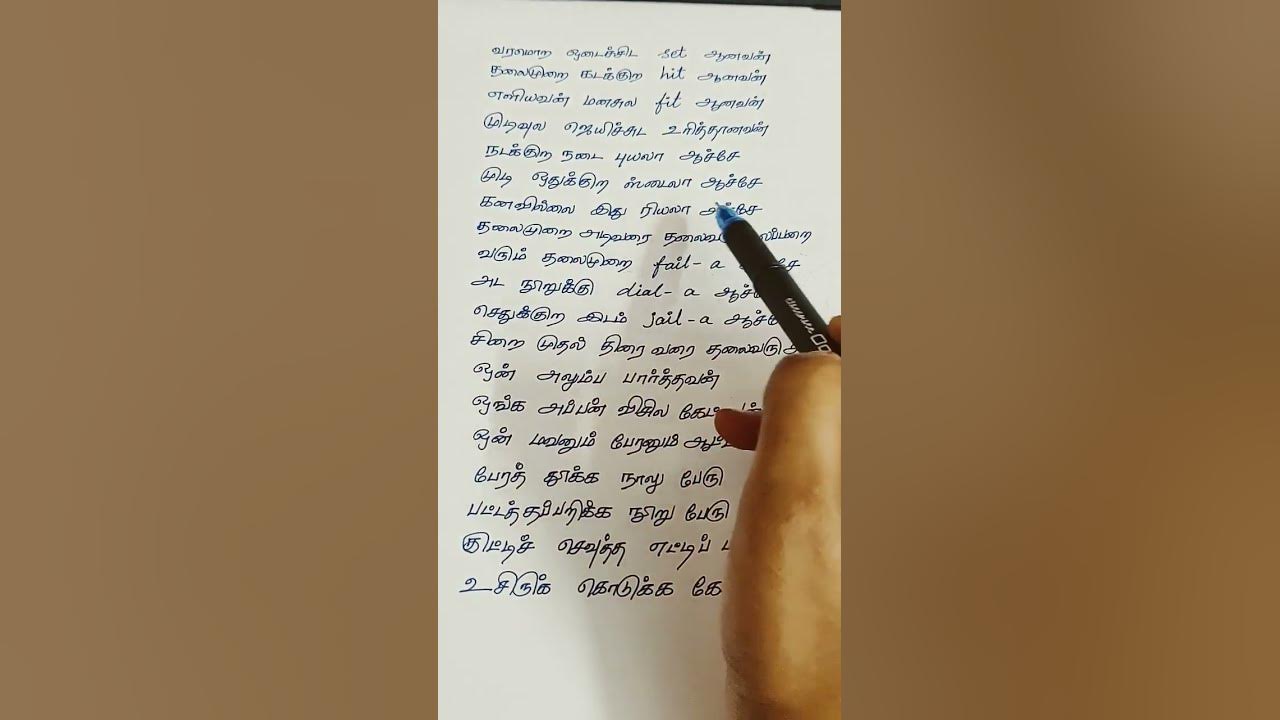 வரலமாற ஒடைச்சிட set ஆனவன்
தலைமுறை கடக்குற hit ஆனவன்
எளியவன் மனசுல fit ஆனவன்
முடிவுல ஜெயிச்சுட உரித்தானவன்
நடக்குற நடை புயலா ஆச்சே
முடி ஒதுக்குற ஸ்டைலா ஆச்சே
கனவில்லை இது ரியலா ஆச்சே
தலைமுறை அடிவரை
வரும் தலைமுறை fail-a
அட நூறுக்கு dial-a
செதுக்குற இடம் jail-a
சிறை முதல் திரை வரை
ஒன் அலும்ப பார்த்தவன்
ஒங்க அப்பன் விசில
ஒன் மவனும் பேரனும்
பேரத் தூக்க நாலு பேரு
பட்டத்தப்பறிக்க நூறு பேரு
குட்டிச் செவுத்த எட்டிப்
உசிருக் கொடுக்க